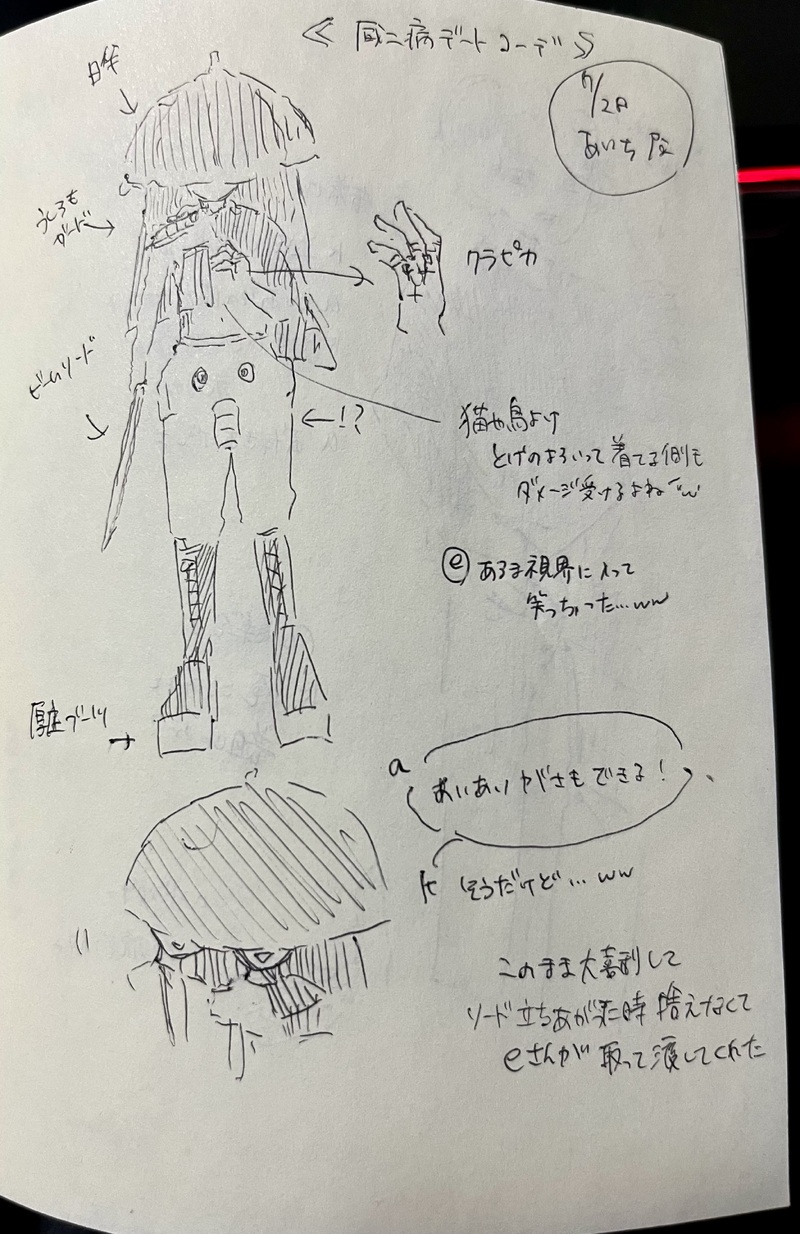 ≪ 厨二病デートコーデ ≫
7/28
あいち
日傘
うしろも
ガード
クラピカ
ビームソード
←!?
猫や鳥よけ
とげのよろいって着てる側も
ダメージ受けるよねw
ⓔ あるま視界に入って
笑っちゃった…ww
厚底ブーツ
a
あいあいがさもできる!
k そうだけど…ww
このまま大喜利して
ソード立ちあがった時 拾えなくて
eさんが取って渡してくれた